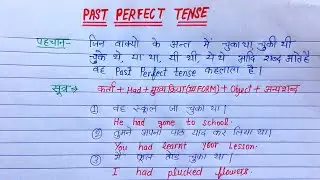 PAST PERFECT TENSE
पहचान- जिन वाक्यो के अन्त में चुका था, चुकी थी
चुके थे, या था, यी थी, ये थे आदि शब्द आते है
वह Past Perfect tense कहलाता है।
सूत्र- कर्ता + Had + मुख्य क्रिया (IIIFORM) + Object + अन्य शब्द
① वह स्कूल जा चुका था।
He had gone to school.
② तुमने अपना पाठ याद कर लिया था।
You had learnt your Lesson.
③ मैं फूल तोड़ चुका था।
I had plucked flowers.